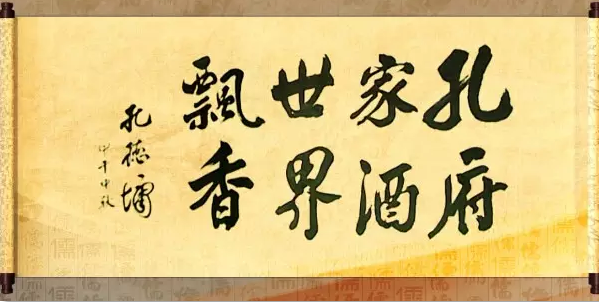 孔府
家酒
世界
飘香
孔德墉
甲午中秋